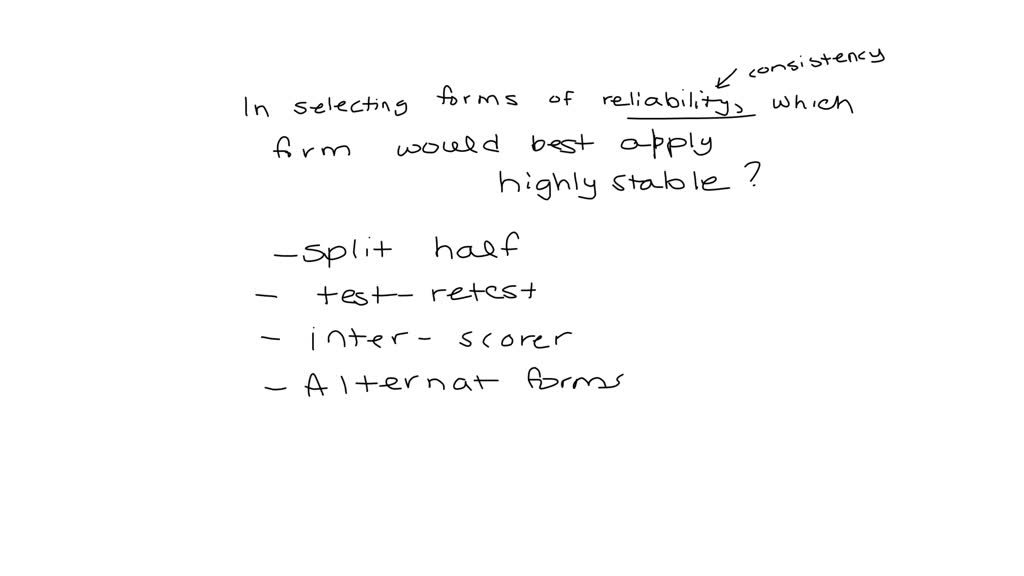 consistency
In selecting forms of reliability, which
form would best apply
highly stable?
- split half
- test-retest
- inter-scorer
- Alternat forms